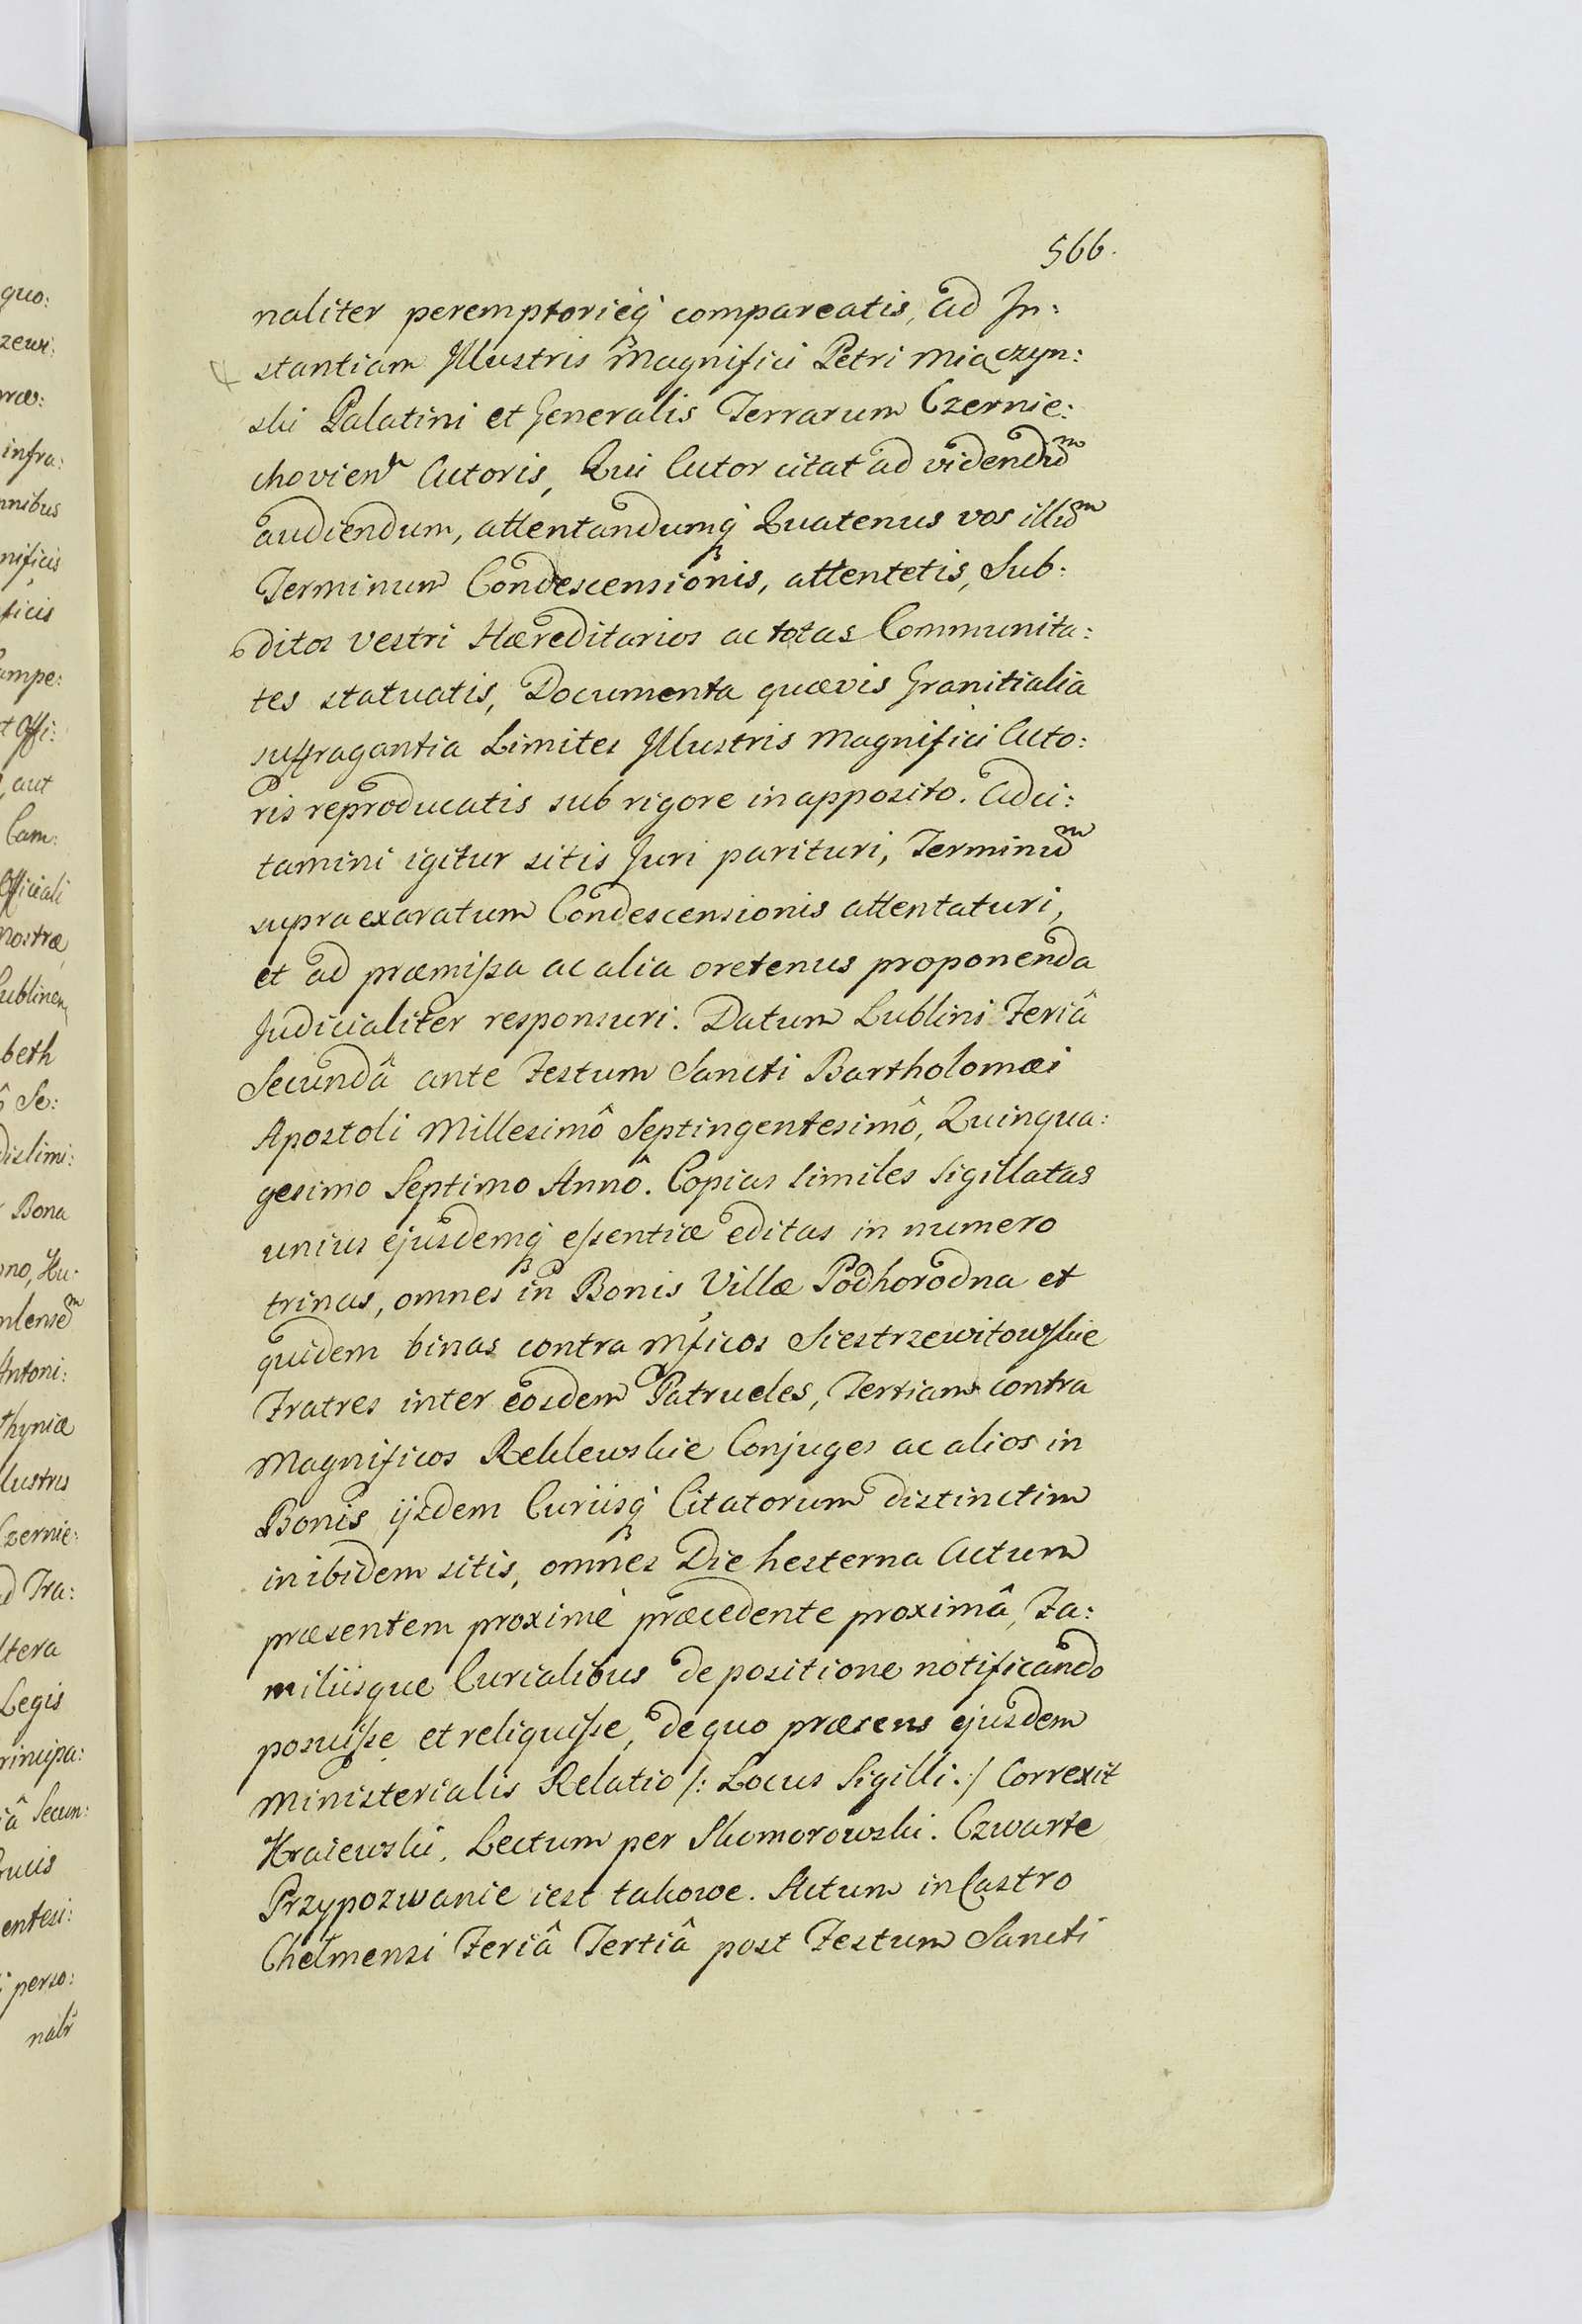 566.
naliter peremptorieq́ compareatis, ad In:
stantiam Illustris Magnifici Petri Miączyn:
ski Palatini et Generalis Terrarum Czernie:
chovien Actoris, Qui Actor citat ad videndu͠m
audiendum, attentandumq́ Quatenus vos illu͠m
Terminum Condescensionis, attentetis, Sub:
ditos vestri Hæreditarios ac totas Communita:
tes statuatis, Documenta quævis Granitialia
suffragantia Limites Illustris Magnifici Acto:
ris reproducatis sub rigore in apposito. Adci:
tamini igitur sitis Juri parituri, Terminu͠m
supra exaratum Condescensionis attentaturi,
et ad præmissa ac alia oretenus proponenda
Judicialiter responsuri. Datum Lublini Feriâ
Secundâ ante Festum Sancti Bartholomæi
Apostoli Millesimô Septingentesimô, Quinqua:
gesimo Septimo Annô. Copias similes sigillatas
unius ejusdemq́ essentiæ editas in numero
trinas, omnes in Bonis Villæ Podhorodna et
quidem binas contra Mficos Siestrzewitowskie
Fratres inter eosdem Patrueles, Tertiam contra
Magnificos Reklewskie Conjuges ac alios in
Bonis ijsdem Curiisq́ Citatorum distinctim
inibidem sitis, omnes Die hesterna Actum
præsentem proximè præcedente proximâ, Fa:
miliisque Curialibus de positione notificando
posuisse et reliquisse, de quo præsens ejusdem
Ministerialis Relatio /: Locus Sigilli :/ Correxit
Kraiewski. Lectum per Skomorowski. Czwarte
Przypozwanie iest takowe. Actum in Castro
Chełmensi Feriâ Tertiâ post Festum Sancti